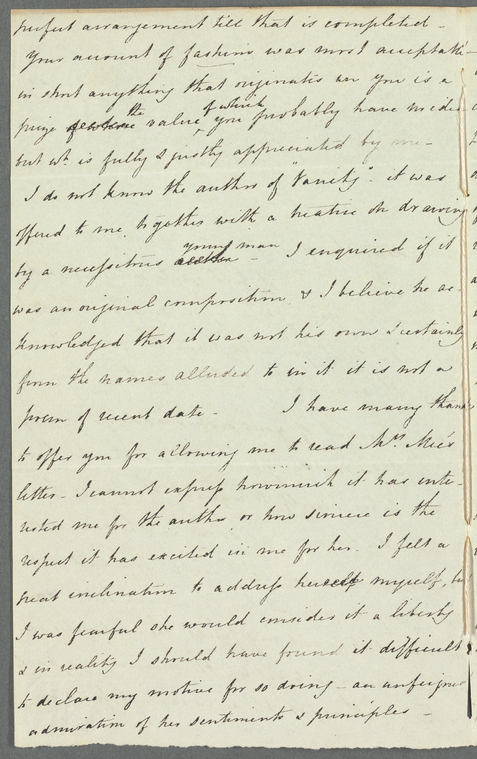 perfect arrangement till that is completed -
Your account of fashions was most acceptable -
in short anything that originates in you is a
prize the value, of which you probably have no idea
but wh. is fully & justly appreciated by me -
I do not know the author of "Vanity". it was
offered to me, together with a treatise on drawing
by a necessitous young man - I enquired if it
was an original composition, & I believe he ac-
knowledged that it was not his own & certainly
from the names alluded to in it it is not a
poem of recent date - I have many thanks
to offer you for allowing me to read Mrs. Mee's
letter - I cannot express how much it has inte-
rested me for the author, or how sincere is the
respect it has excited in me for her. I felt a
great inclination to address herself myself, but
I was fearful she would consider it a liberty
& in reality I should have found it difficult
to declare my motive for so doing - an unfeigned
admiration of her sentiments & principles -